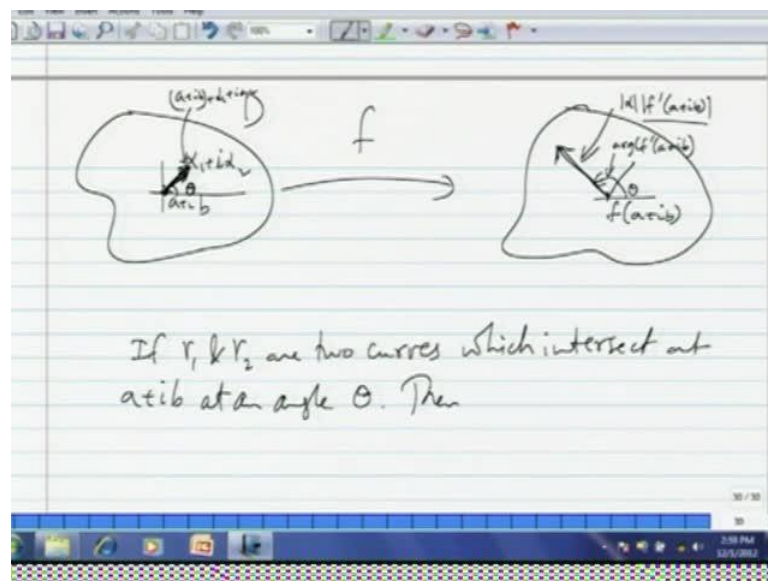 100%
f
α₁+iα₂
θ
a+ib
|α||f'(a+ib)|
arg(f'(a+ib)
θ
f(a+ib)
If γ₁ & γ₂ are two curves which intersect at
a+ib at an angle θ. Then
30 / 30
30
2:59 PM
12/5/2012